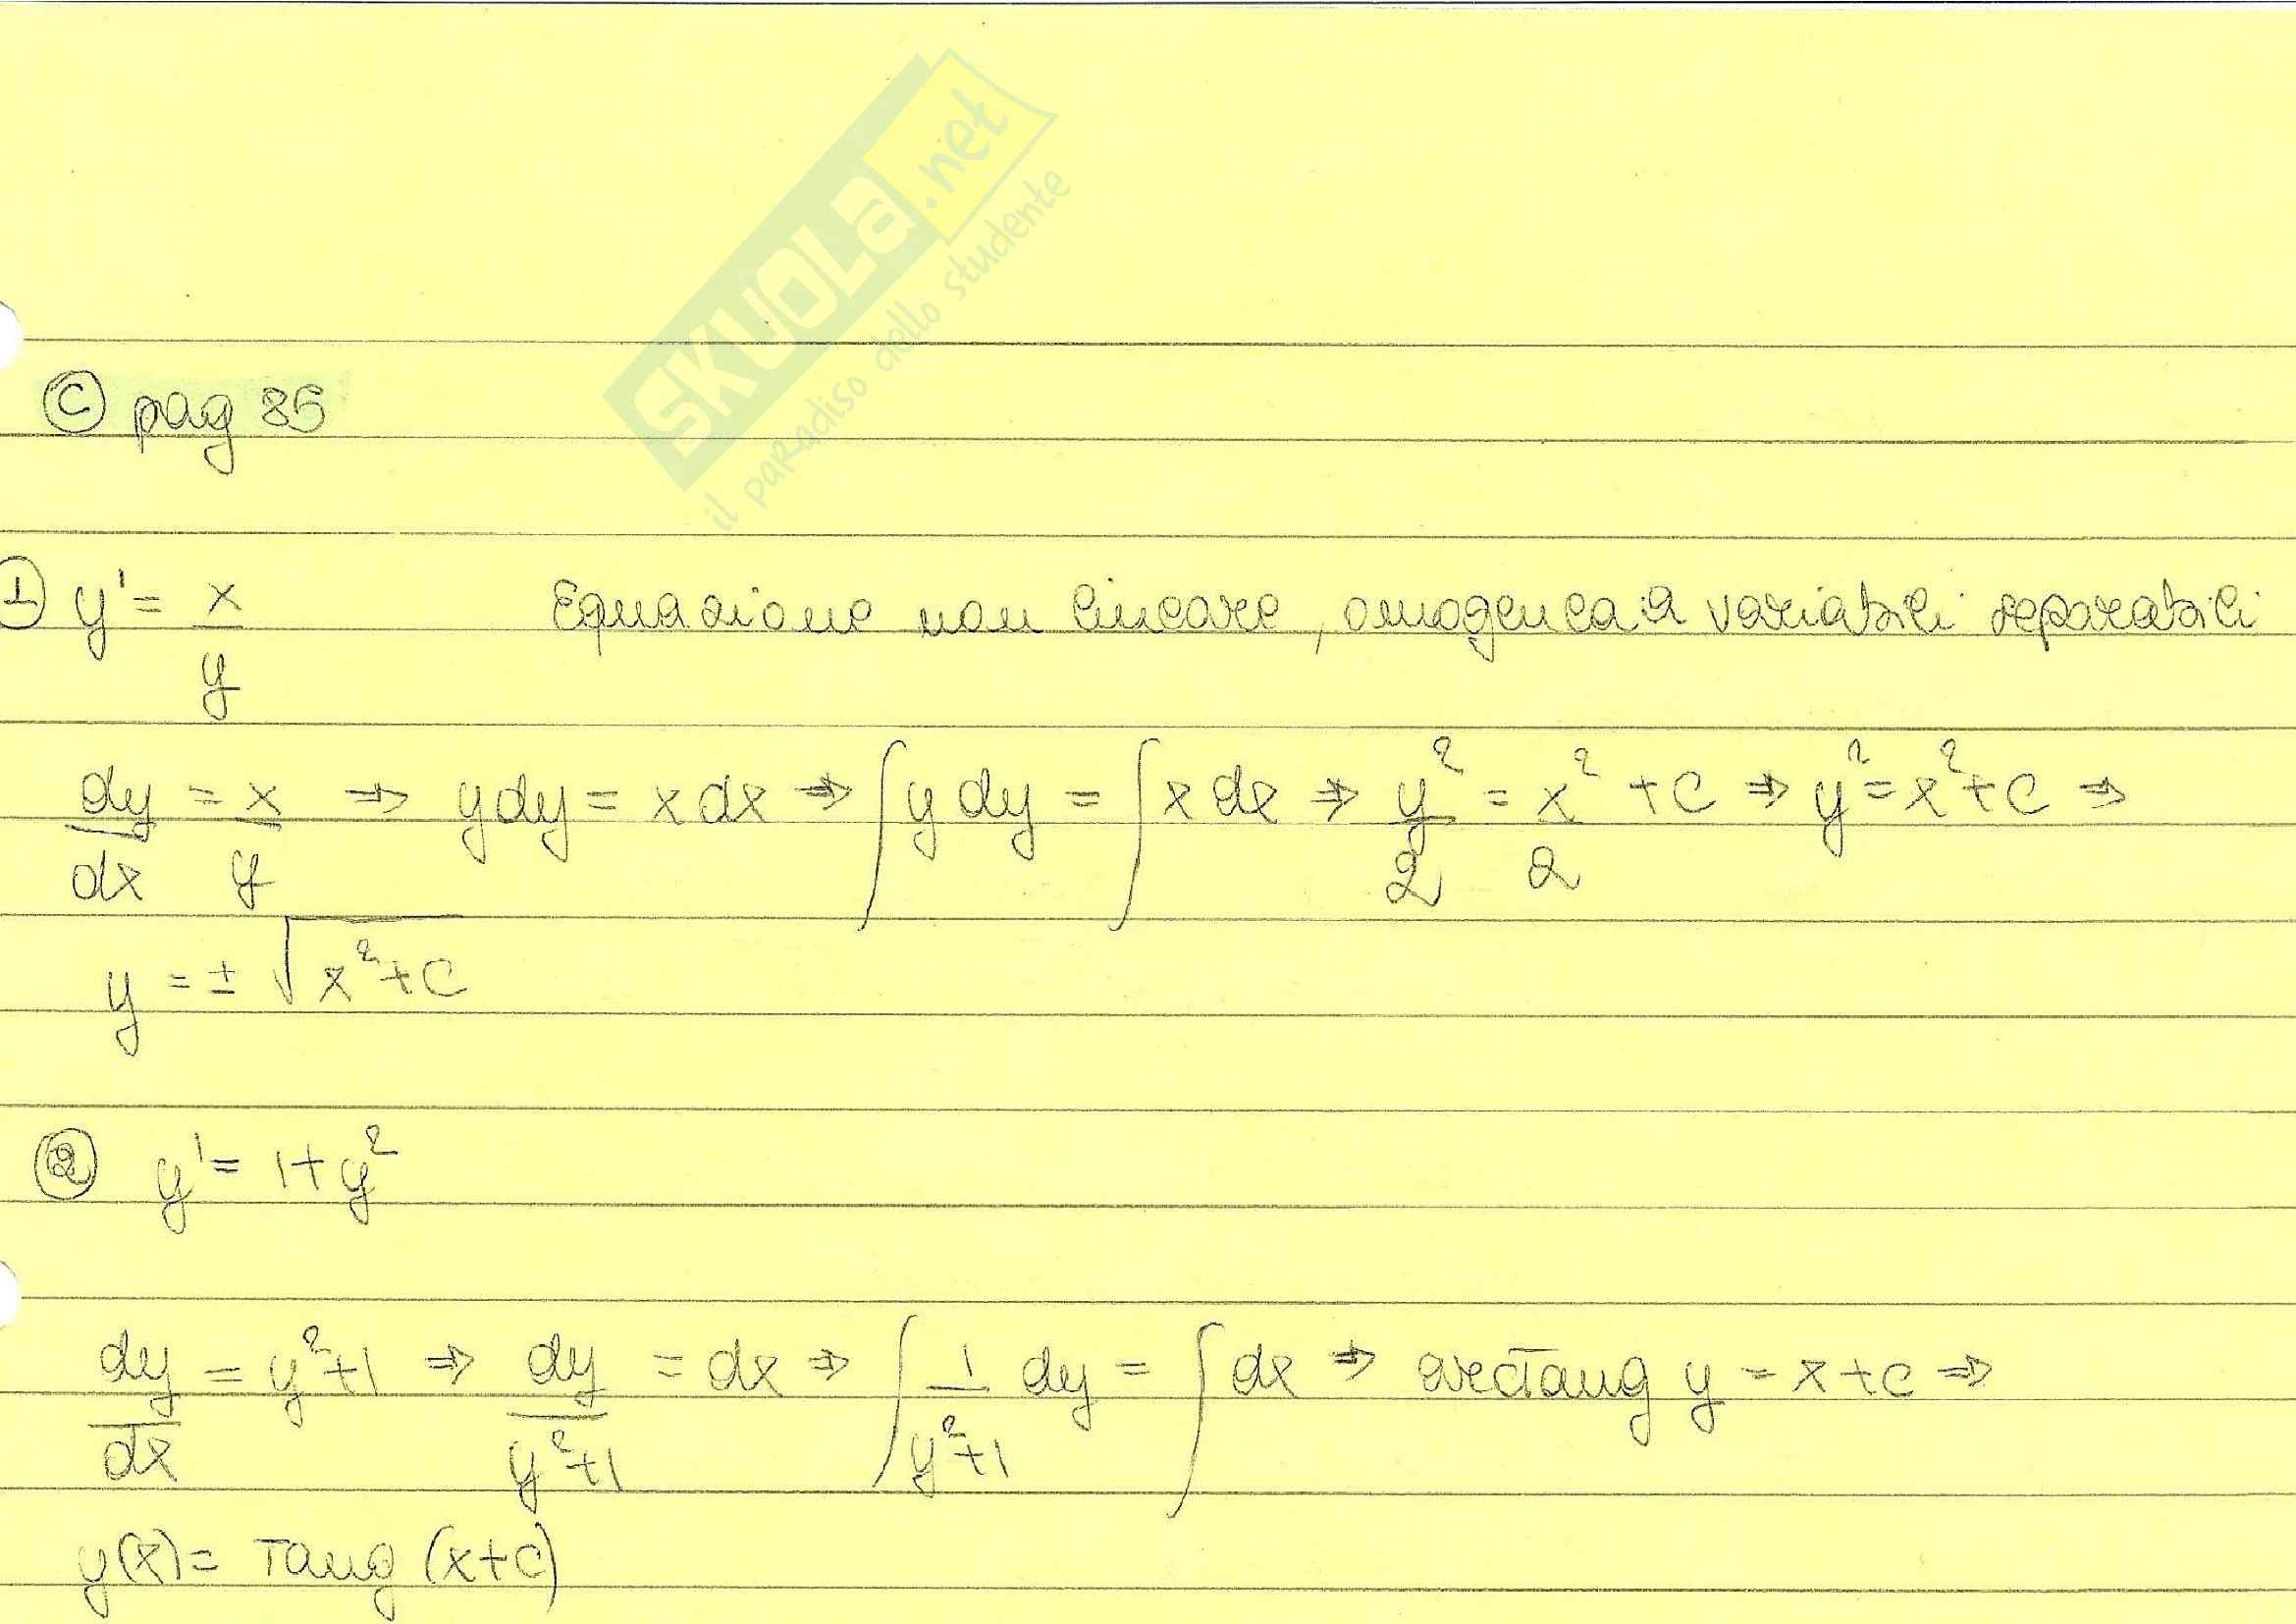 SKUOLA.net
il paradiso dello studente
Ⓒ pag 35
① y' = x/y Equazione non lineare, omogenea a variabili separabili
dy/dx = x/y ⇒ y dy = x dx ⇒ ∫ y dy = ∫ x dx ⇒ y²/2 = x²/2 + C ⇒ y² = x² + C ⇒
y = ± √(x² + C)
② y' = 1 + y²
dy/dx = y² + 1 ⇒ dy/(y² + 1) = dx ⇒ ∫ 1/(y² + 1) dy = ∫ dx ⇒ arctang y = x + c ⇒
y(x) = Tang (x + c)